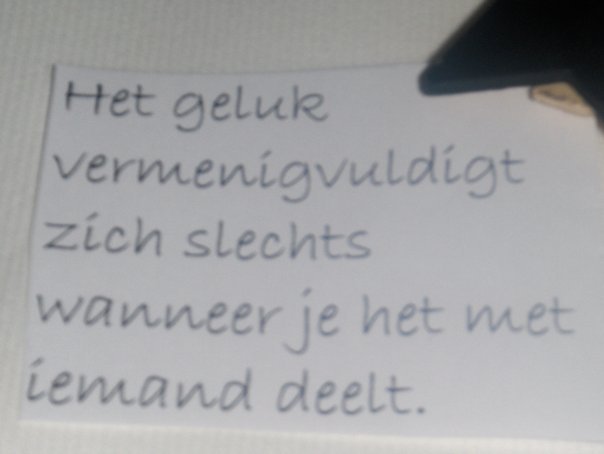 Het geluk
vermenigvuldigt
zich slechts
wanneer je het met
iemand deelt.